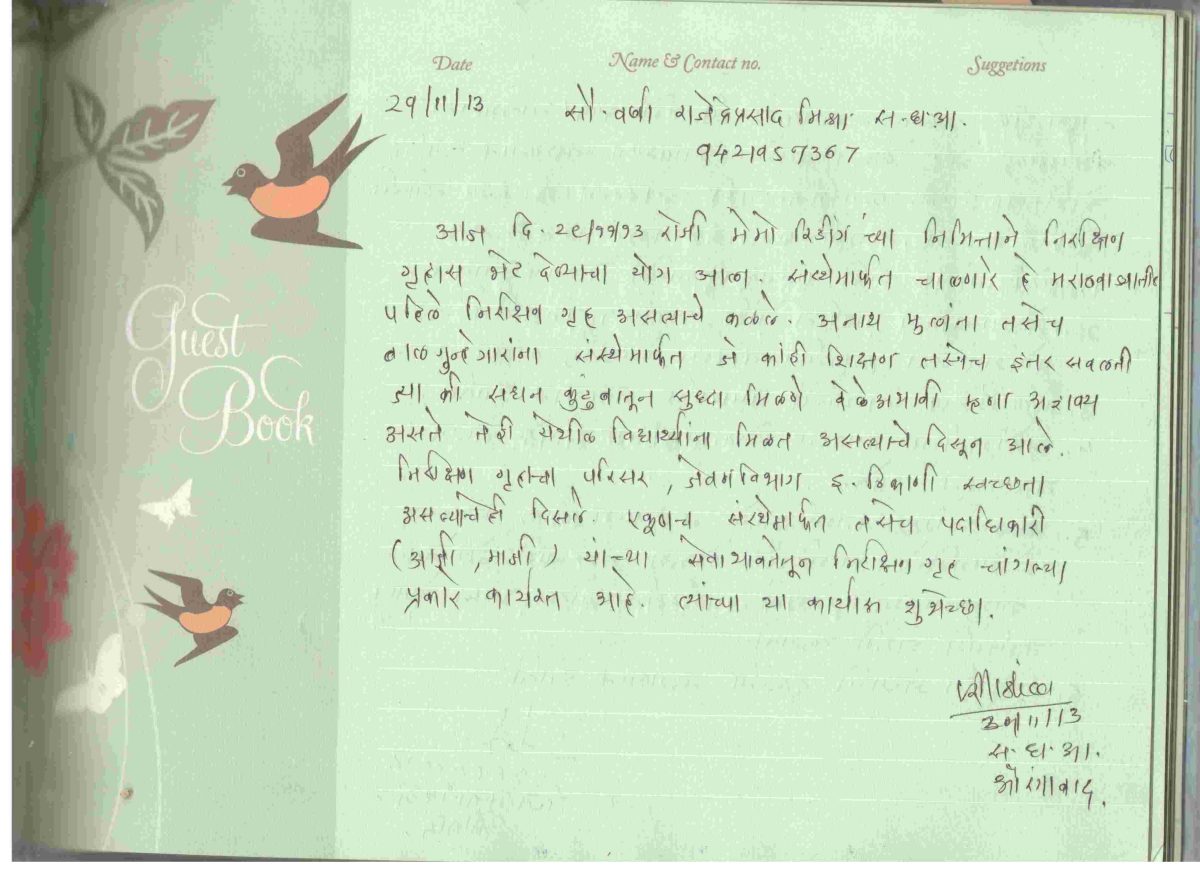 Date Name & Contact no. Suggetions
29/11/13 सौ. वर्षा राजेंद्रप्रसाद मिश्रा स.ध.आ.
9421957367
आज दि. २९/११/१३ रोजी मेमो रिडींग च्या निमित्ताने निरीक्षण
गृहास भेट देण्याचा योग आला. संस्थेमार्फत चालणारे हे मराठवाड्यातील
पहिले निरीक्षण गृह असल्याचे कळले. अनाथ मुलांना तसेच
बाळगुन्हेगारांना संस्थेमार्फत जे कांही शिक्षण तसेच इतर सवलती
ज्या की सधन कुटुंबातून सुध्दा मिळणे वेळेअभावी अशक्य
असते तेही येथील विद्यार्थ्यांना मिळत असल्याचे दिसून आले.
निरीक्षण गृहाचा परिसर, जेवणविभाग इ. ठिकाणी स्वच्छता
असल्याचेही दिसले. एकूणच संस्थेमार्फत तसेच पदाधिकारी
(आजी, माजी) यांच्या सेवाभावतेतून निरीक्षण गृह चांगल्या
प्रकारे कार्यरत आहे. त्यांच्या या कार्यास शुभेच्छा.
Guest
Book
11/13
स. ध. आ.
औरंगाबाद.